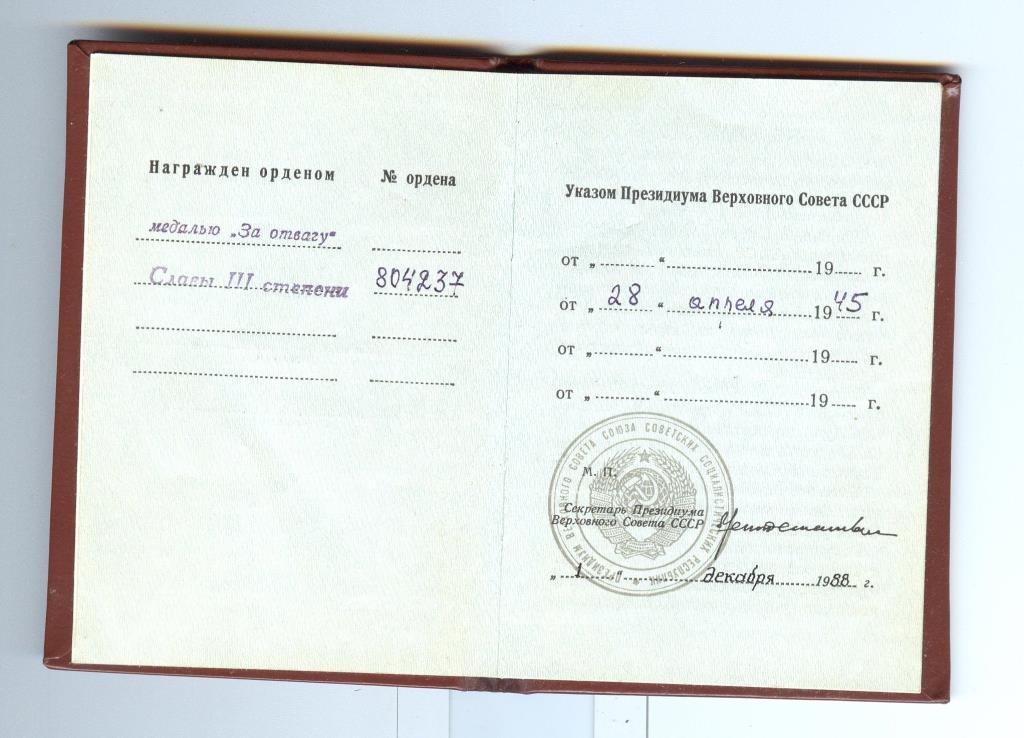 Награжден орденом № ордена
медалью „За отвагу“
Славы III степени 804237
Указом Президиума Верховного Совета СССР
от „ “ 19 г.
от „ 28 “ апреля 1945 г.
от „ “ 19 г.
от „ “ 19 г.
ПРЕЗИДИУМ ВЕРХОВНОГО СОВЕТА СОЮЗА СОВЕТСКИХ СОЦИАЛИСТИЧЕСКИХ РЕСПУБЛИК
М. П.
Секретарь Президиума
Верховного Совета СССР
„ 1 “ декабря 1988 г.